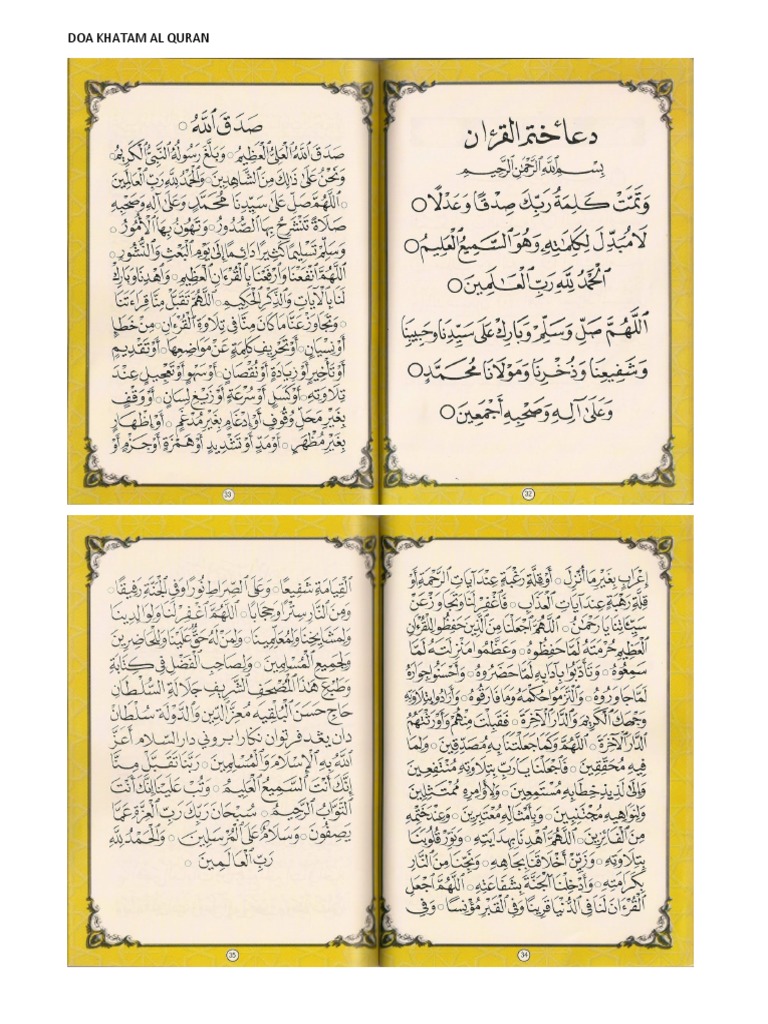 DOA KHATAM AL QURAN
دعاء ختم القرءان
بِسْمِ ٱللَّهِ ٱلرَّحْمَٰنِ ٱلرَّحِيمِ
وَتَمَّتْ كَلِمَةُ رَبِّكَ صِدْقًا وَعَدْلًا ○
لَا مُبَدِّلَ لِكَلِمَاتِهِ وَهُوَ السَّمِيعُ الْعَلِيمُ ○
اَلْحَمْدُ لِلَّهِ رَبِّ الْعَالَمِينَ ○
اَللَّهُمَّ صَلِّ وَسَلِّمْ وَبَارِكْ عَلَى سَيِّدِنَا وَحَبِيبِنَا
وَشَفِيعِنَا وَذُخْرِنَا وَمَوْلَانَا مُحَمَّدٍ ○
وَعَلَى آلِهِ وَصَحْبِهِ أَجْمَعِينَ ○
32
صَدَقَ ٱللَّهُ ○
صَدَقَ ٱللَّهُ الْعَلِيُّ الْعَظِيمُ ○ وَبَلَّغَ رَسُولُهُ النَّبِيُّ الْكَرِيمُ ○
وَنَحْنُ عَلَى ذَلِكَ مِنَ الشَّاهِدِينَ ○ وَالْحَمْدُ لِلَّهِ رَبِّ الْعَالَمِينَ
○ اَللَّهُمَّ صَلِّ عَلَى سَيِّدِنَا مُحَمَّدٍ وَعَلَى آلِهِ وَصَحْبِهِ
صَلَاةً تَنْشَرِحُ بِهَا الصُّدُورُ ○ وَتَهُونُ بِهَا الْأُمُورُ ○
وَسَلِّمْ تَسْلِيمًا كَثِيرًا دَائِمًا إِلَى يَوْمِ الْبَعْثِ وَالنُّشُورِ ○
اَللَّهُمَّ انْفَعْنَا وَارْفَعْنَا بِالْقُرْءَانِ الْعَظِيمِ ○ وَاهْدِنَا وَبَارِكْ
لَنَا بِالْآيَاتِ وَالذِّكْرِ الْحَكِيمِ ○ اَللَّهُمَّ تَقَبَّلْ مِنَّا قِرَاءَتَنَا
○ وَتَجَاوَزْ عَنَّا مَا كَانَ مِنَّا فِي تِلَاوَةِ الْقُرْءَانِ ○ مِنْ خَطَإٍ
أَوْ نِسْيَانٍ ○ أَوْ تَحْرِيفِ كَلِمَةٍ عَنْ مَوَاضِعِهَا ○ أَوْ تَقْدِيمٍ
أَوْ تَأْخِيرٍ أَوْ زِيَادَةٍ أَوْ نُقْصَانٍ ○ أَوْ سَهْوٍ أَوْ تَعْجِيلٍ عِنْدَ
تِلَاوَتِهِ ○ أَوْ كَسَلٍ أَوْ سُرْعَةٍ أَوْ زَيْغِ لِسَانٍ ○ أَوْ وَقْفٍ
بِغَيْرِ مَحَلِّ وُقُوفٍ ○ أَوْ إِدْغَامٍ بِغَيْرِ مُدْغَمٍ ○ أَوْ إِظْهَارٍ
بِغَيْرِ مُظْهَرٍ ○ أَوْ مَدٍّ أَوْ تَشْدِيدٍ أَوْ هَمْزَةٍ أَوْ جَزْمٍ أَوْ
33
إِعْرَابٍ بِغَيْرِ مَا أُنْزِلَ ○ أَوْ قِلَّةِ رَغْبَةٍ عِنْدَ آيَاتِ الرَّحْمَةِ أَوْ
قِلَّةِ رَهْبَةٍ عِنْدَ آيَاتِ الْعَذَابِ ○ فَاغْفِرْ لَنَا وَتَجَاوَزْ عَنْ
سَيِّئَاتِنَا يَا رَحْمَنُ ○ اَللَّهُمَّ اجْعَلْنَا مِنَ الَّذِينَ حَفِظُوا لِلْقُرْءَانِ
الْعَظِيمِ حُرْمَتَهُ لَمَّا حَفِظُوهُ ○ وَعَظَّمُوا مَنْزِلَتَهُ لَمَّا
سَمِعُوهُ ○ وَتَأَدَّبُوا بِآدَابِهِ لَمَّا حَضَرُوهُ ○ وَأَحْسَنُوا جِوَارَهُ
لَمَّا جَاوَرُوهُ ○ وَالْتَزَمُوا حُكْمَهُ وَمَا فَارَقُوهُ ○ وَأَرَادُوا بِتِلَاوَتِهِ
وَجْهَكَ الْكَرِيمَ وَالدَّارَ الْآخِرَةَ ○ فَقَبِلْتَ مِنْهُمْ وَأَوْرَثْتَهُمُ
الدَّارَ الْآخِرَةَ ○ اَللَّهُمَّ وَكَمَا جَعَلْتَنَا بِهِ مُصَدِّقِينَ ○ وَلِمَا
فِيهِ مُحَقِّقِينَ ○ فَاجْعَلْنَا يَا رَبِّ بِتِلَاوَتِهِ مُنْتَفِعِينَ
وَإِلَى لَذِيذِ خِطَابِهِ مُسْتَمِعِينَ ○ وَلِأَوَامِرِهِ مُمْتَثِلِينَ
وَلِنَوَاهِيهِ مُجْتَنِبِينَ ○ وَبِأَمْثَالِهِ مُعْتَبِرِينَ ○ وَعِنْدَ خَتْمِهِ
مِنَ الْفَائِزِينَ ○ اَللَّهُمَّ اهْدِنَا بِهِدَايَتِهِ ○ وَنَوِّرْ قُلُوبَنَا
بِتِلَاوَتِهِ ○ وَزَيِّنْ أَخْلَاقَنَا بِجَاهِهِ ○ وَنَجِّنَا مِنَ النَّارِ
بِكَرَامَتِهِ ○ وَأَدْخِلْنَا الْجَنَّةَ بِشَفَاعَتِهِ ○ اَللَّهُمَّ اجْعَلِ
الْقُرْءَانَ لَنَا فِي الدُّنْيَا قَرِينًا وَفِي الْقَبْرِ مُؤْنِسًا ○ وَفِي
34
الْقِيَامَةِ شَفِيعًا ○ وَعَلَى الصِّرَاطِ نُورًا وَفِي الْجَنَّةِ رَفِيقًا ○
وَمِنَ النَّارِ سِتْرًا وَحِجَابًا ○ اَللَّهُمَّ اغْفِرْ لَنَا وَلِوَالِدِينَا
وَلِمَشَايِخِنَا وَلِمُعَلِّمِينَا ○ وَلِمَنْ لَهُ حَقٌّ عَلَيْنَا وَلِلْحَاضِرِينَ
وَلِجَمِيعِ الْمُسْلِمِينَ ○ وَلِصَاحِبِ الْفَضْلِ فِي كِتَابَةِ
وَطَبْعِ هَذَا الْمُصْحَفِ الشَّرِيفِ جَلَالَةِ السُّلْطَان
حاج حسن البلقيه معز الدين والدولة سلطان
دان يغد فرتوان نكارا بروني دار السلام أَعَزَّ
اللَّهُ بِهِ الْإِسْلَامَ وَالْمُسْلِمِينَ ○ رَبَّنَا تَقَبَّلْ مِنَّا
إِنَّكَ أَنْتَ السَّمِيعُ الْعَلِيمُ ○ وَتُبْ عَلَيْنَا إِنَّكَ أَنْتَ
التَّوَّابُ الرَّحِيمُ ○ سُبْحَانَ رَبِّكَ رَبِّ الْعِزَّةِ عَمَّا
يَصِفُونَ ○ وَسَلَامٌ عَلَى الْمُرْسَلِينَ ○ وَالْحَمْدُ لِلَّهِ
رَبِّ الْعَالَمِينَ ○
35